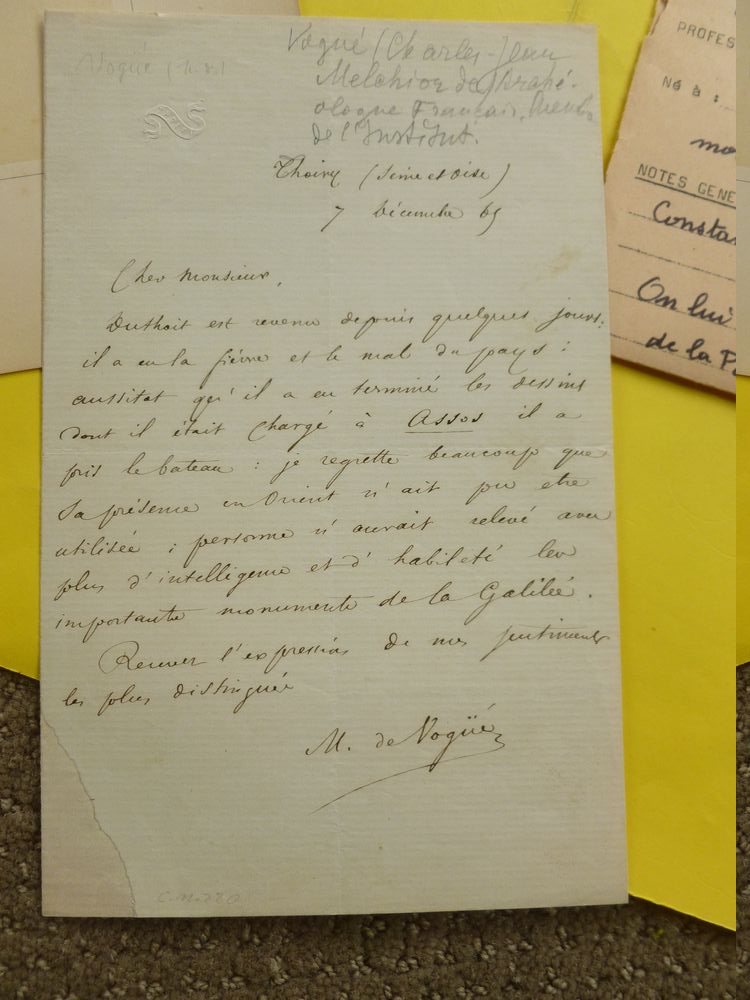 Vogué (
Vogué (Charles-Jean
Melchior de) Arché-
ologue Français, Membre
de l'Institut.
Thoiry (Seine et Oise)
7 Décembre 65
Cher Monsieur,
Duthoit est revenu depuis quelques jours :
il a eu la fièvre et le mal du pays :
aussitot qu'il a eu terminé les dessins
dont il était chargé à Assos il a
pris le bateau : je regrette beaucoup que
sa présence en Orient n'ait pu etre
utilisée ; personne n'aurait relevé avec
plus d'intelligence et d'habileté les
importants monuments de la Galilée.
Recevez l'expression de mes sentiments
les plus distingués
M. de Vogüé
PROFES
Né à :
NOTES GENE
Constan
On lui
de la P